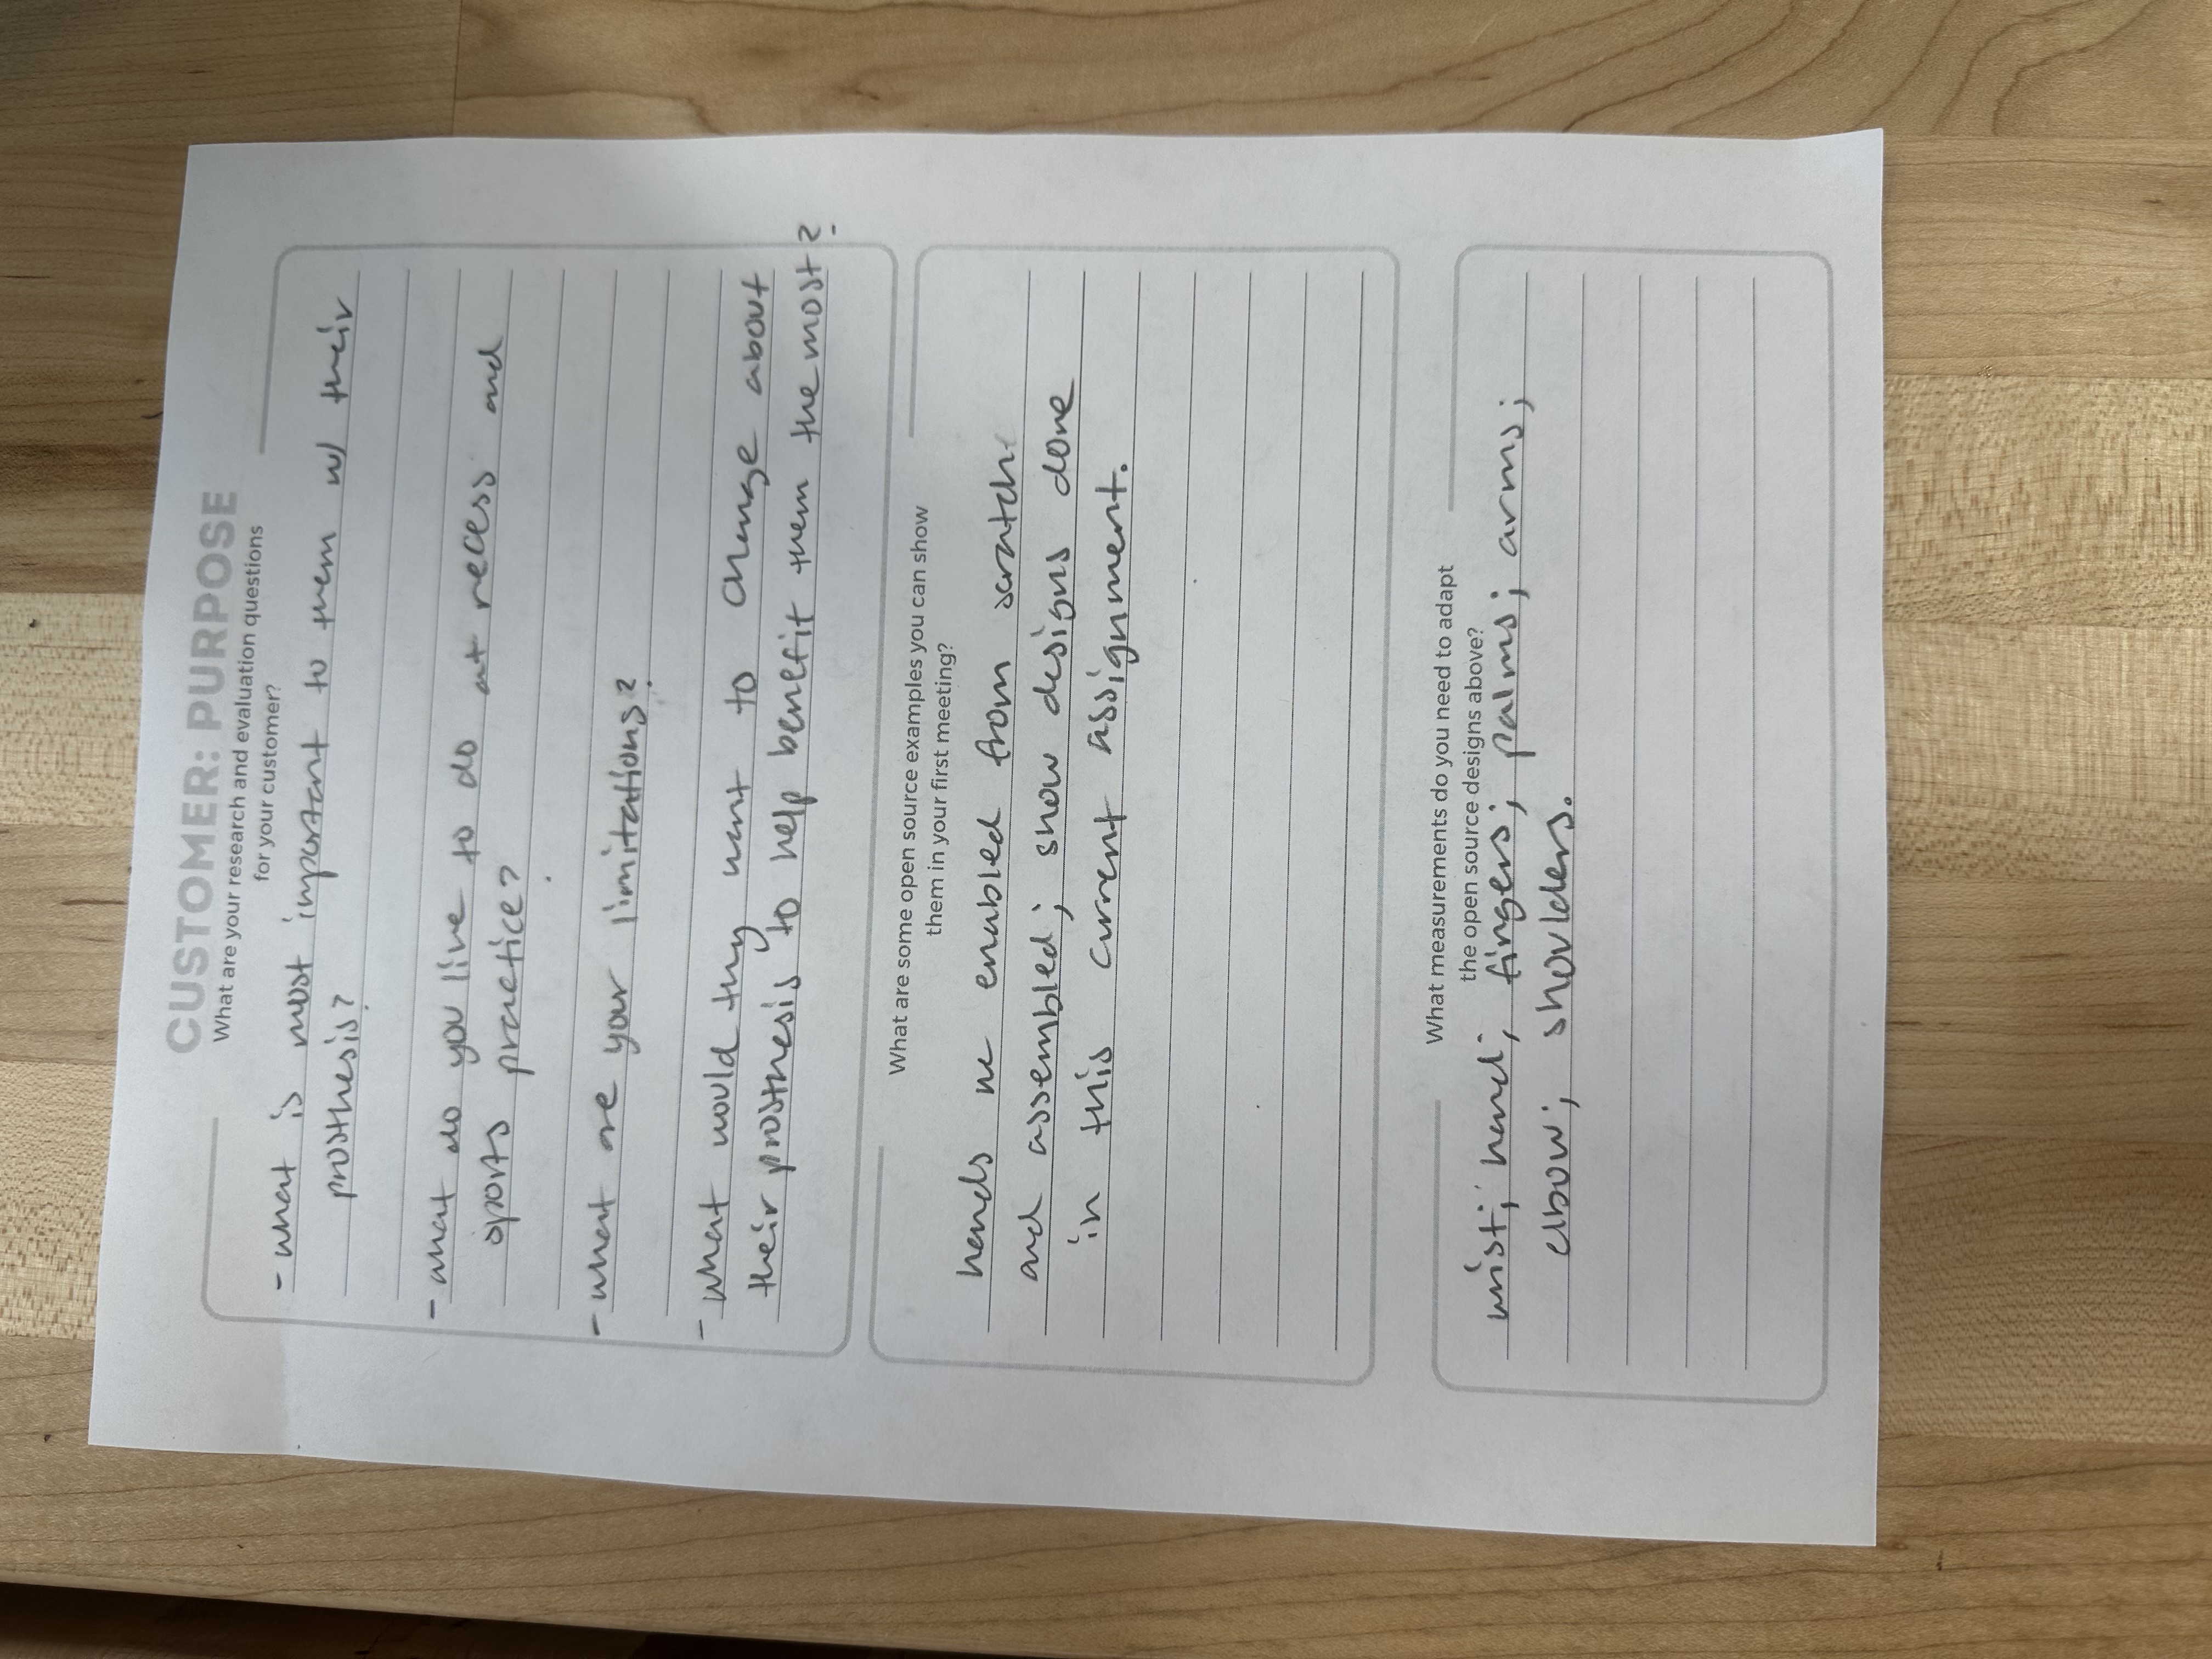 CUSTOMER: PURPOSE
What are your research and evaluation questions
for your customer?
- what is most important to them w/ their
prosthesis?
- what do you like to do at recess and
sports practice?
- what are your limitations?
- what would they want to change about
their prosthesis to help benefit them the most?
What are some open source examples you can show
them in your first meeting?
hands we enabled from scratch
and assembled; show designs done
in this current assignment.
What measurements do you need to adapt
the open source designs above?
wrist; hand; fingers; palms; arms;
elbow; shoulders.